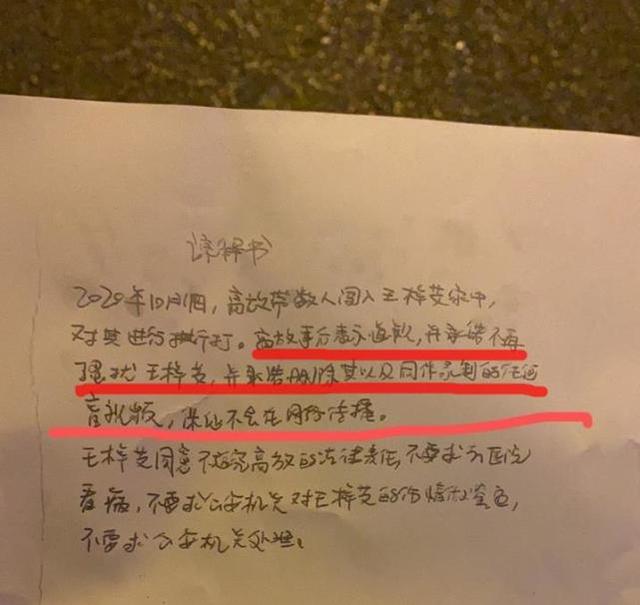 谅解书
2020年10月1日，高放带数人闯入王梓茇家中，
对其进行推打。高放事后表示道歉，并承诺不再
骚扰王梓茇，并承诺删除其以及同伴录制的任何
音视频，保证不会在网络传播。
王梓茇同意不追究高放的法律责任，不要求去医院
看病，不要求公安机关对王梓茇的伤情做鉴定，
不要求公安机关处理。